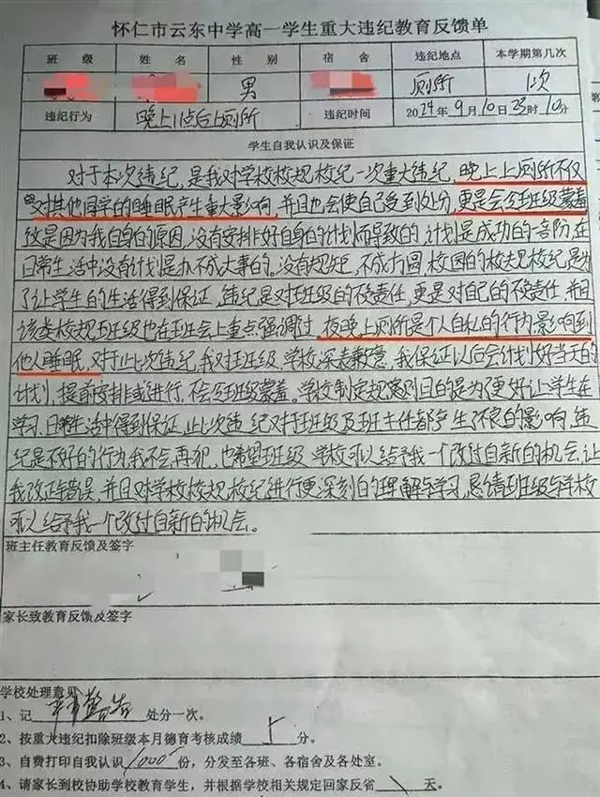 怀仁市云东中学高一学生重大违纪教育反馈单
班 级 姓 名 性 别 宿 舍 违纪地点 本学期第几次
男 厕所 1次
违纪行为 晚上11点后上厕所 违纪时间 2024年9月10日23时10分
学生自我认识及保证
对于本次违纪,是我对学校校规校纪一次重大违纪,晚上上厕所不仅
对其他同学的睡眠产生重大影响,并且也会使自己受到处分,更是会令班级蒙羞
这是因为我自身的原因,没有安排好自身的计划而导致的,计划是成功的音阶,在
日常生活中没有计划是办不成大事的。没有规矩,不成方圆,校园的校规校纪是为
了让学生的生活得到保证,违纪是对班级的不负责任,更是对自己的不负责任,并且
该类校规班级也在班会上重点强调过,夜晚上厕所是个人自私的行为影响到
他人睡眠,对于此次违纪,我对班级、学校深表歉意,我保证以后会计划好当天的
计划,提前安排或进行,不会令班级蒙羞。学校制定规章则目的是为了更好让学生在
学习、日常生活中得到保证,此次违纪对于班级及班主任都产生了不良的影响,违
纪是不好的行为,我不会再犯,也希望班级 学校可以给予我一个改过自新的机会,让
我改正错误,并且对学校校规校纪进行更深刻的理解与学习,恳请班级与学校
可以给予我一个改过自新的机会。
班主任教育反馈及签字
家长致教育反馈及签字
学校处理意见
1、记 严重警告 处分一次。
2、按重大违纪扣除班级本月德育考核成绩 分。
3、自费打印自我认识 1000 份,分发至各班、各宿舍及各处室。
4、请家长到校协助学校教育学生,并根据学校相关规定回家反省 天。